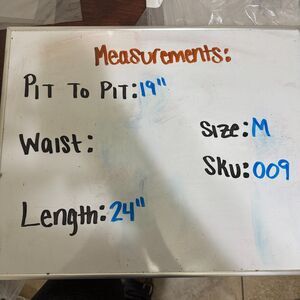 Measurements:
PIT TO PIT: 19"
Waist:
Size: M
Sku: 009
Length: 24"